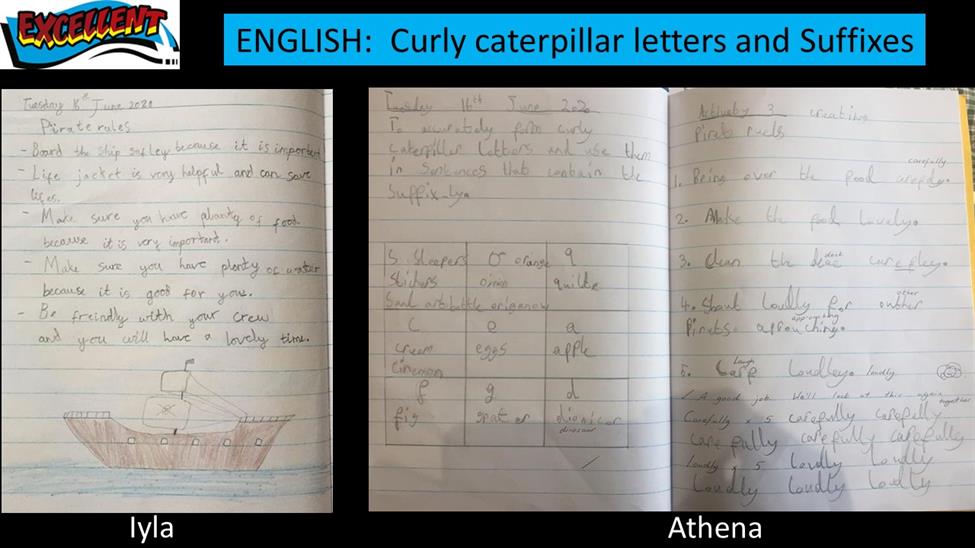 EXCELLENT
ENGLISH: Curly caterpillar letters and Suffixes
Tuesday 16th June 2020
Pirate rules
- Board the ship safley because it is important
- Life jacket is very helpful and can save
lifes.
- Make sure you have planty of food
because it is very important.
- Make sure you have plenty of water
because it is good for you.
- Be freindly with your crew
and you will have a lovely time.
Tuesday 16th June 2020
To accurately form curly
caterpillar letters and use them
in sentences that contain the
suffix -ly.
S Sleepers
o orange
q
Stickers
onion
quilte
C
e
a
cream
eggs
apple
cinemon
f
g
d
fig
dinosaur
Activity 3 creating
Pirate ruels
carefully
1. Bring over the food
2. Make the food Lovely.
deck
3. Clean the
other
4. Shout loudly for
approaching
Pirets
Laugh
5. Loudley. loudly
A good job. We'll look at this again
together
Carefully x 5 carefully carefully
carefully carefully carefully
loudly x 5 Loudly Loudly
Loudly Loudly Loudly
Iyla
Athena